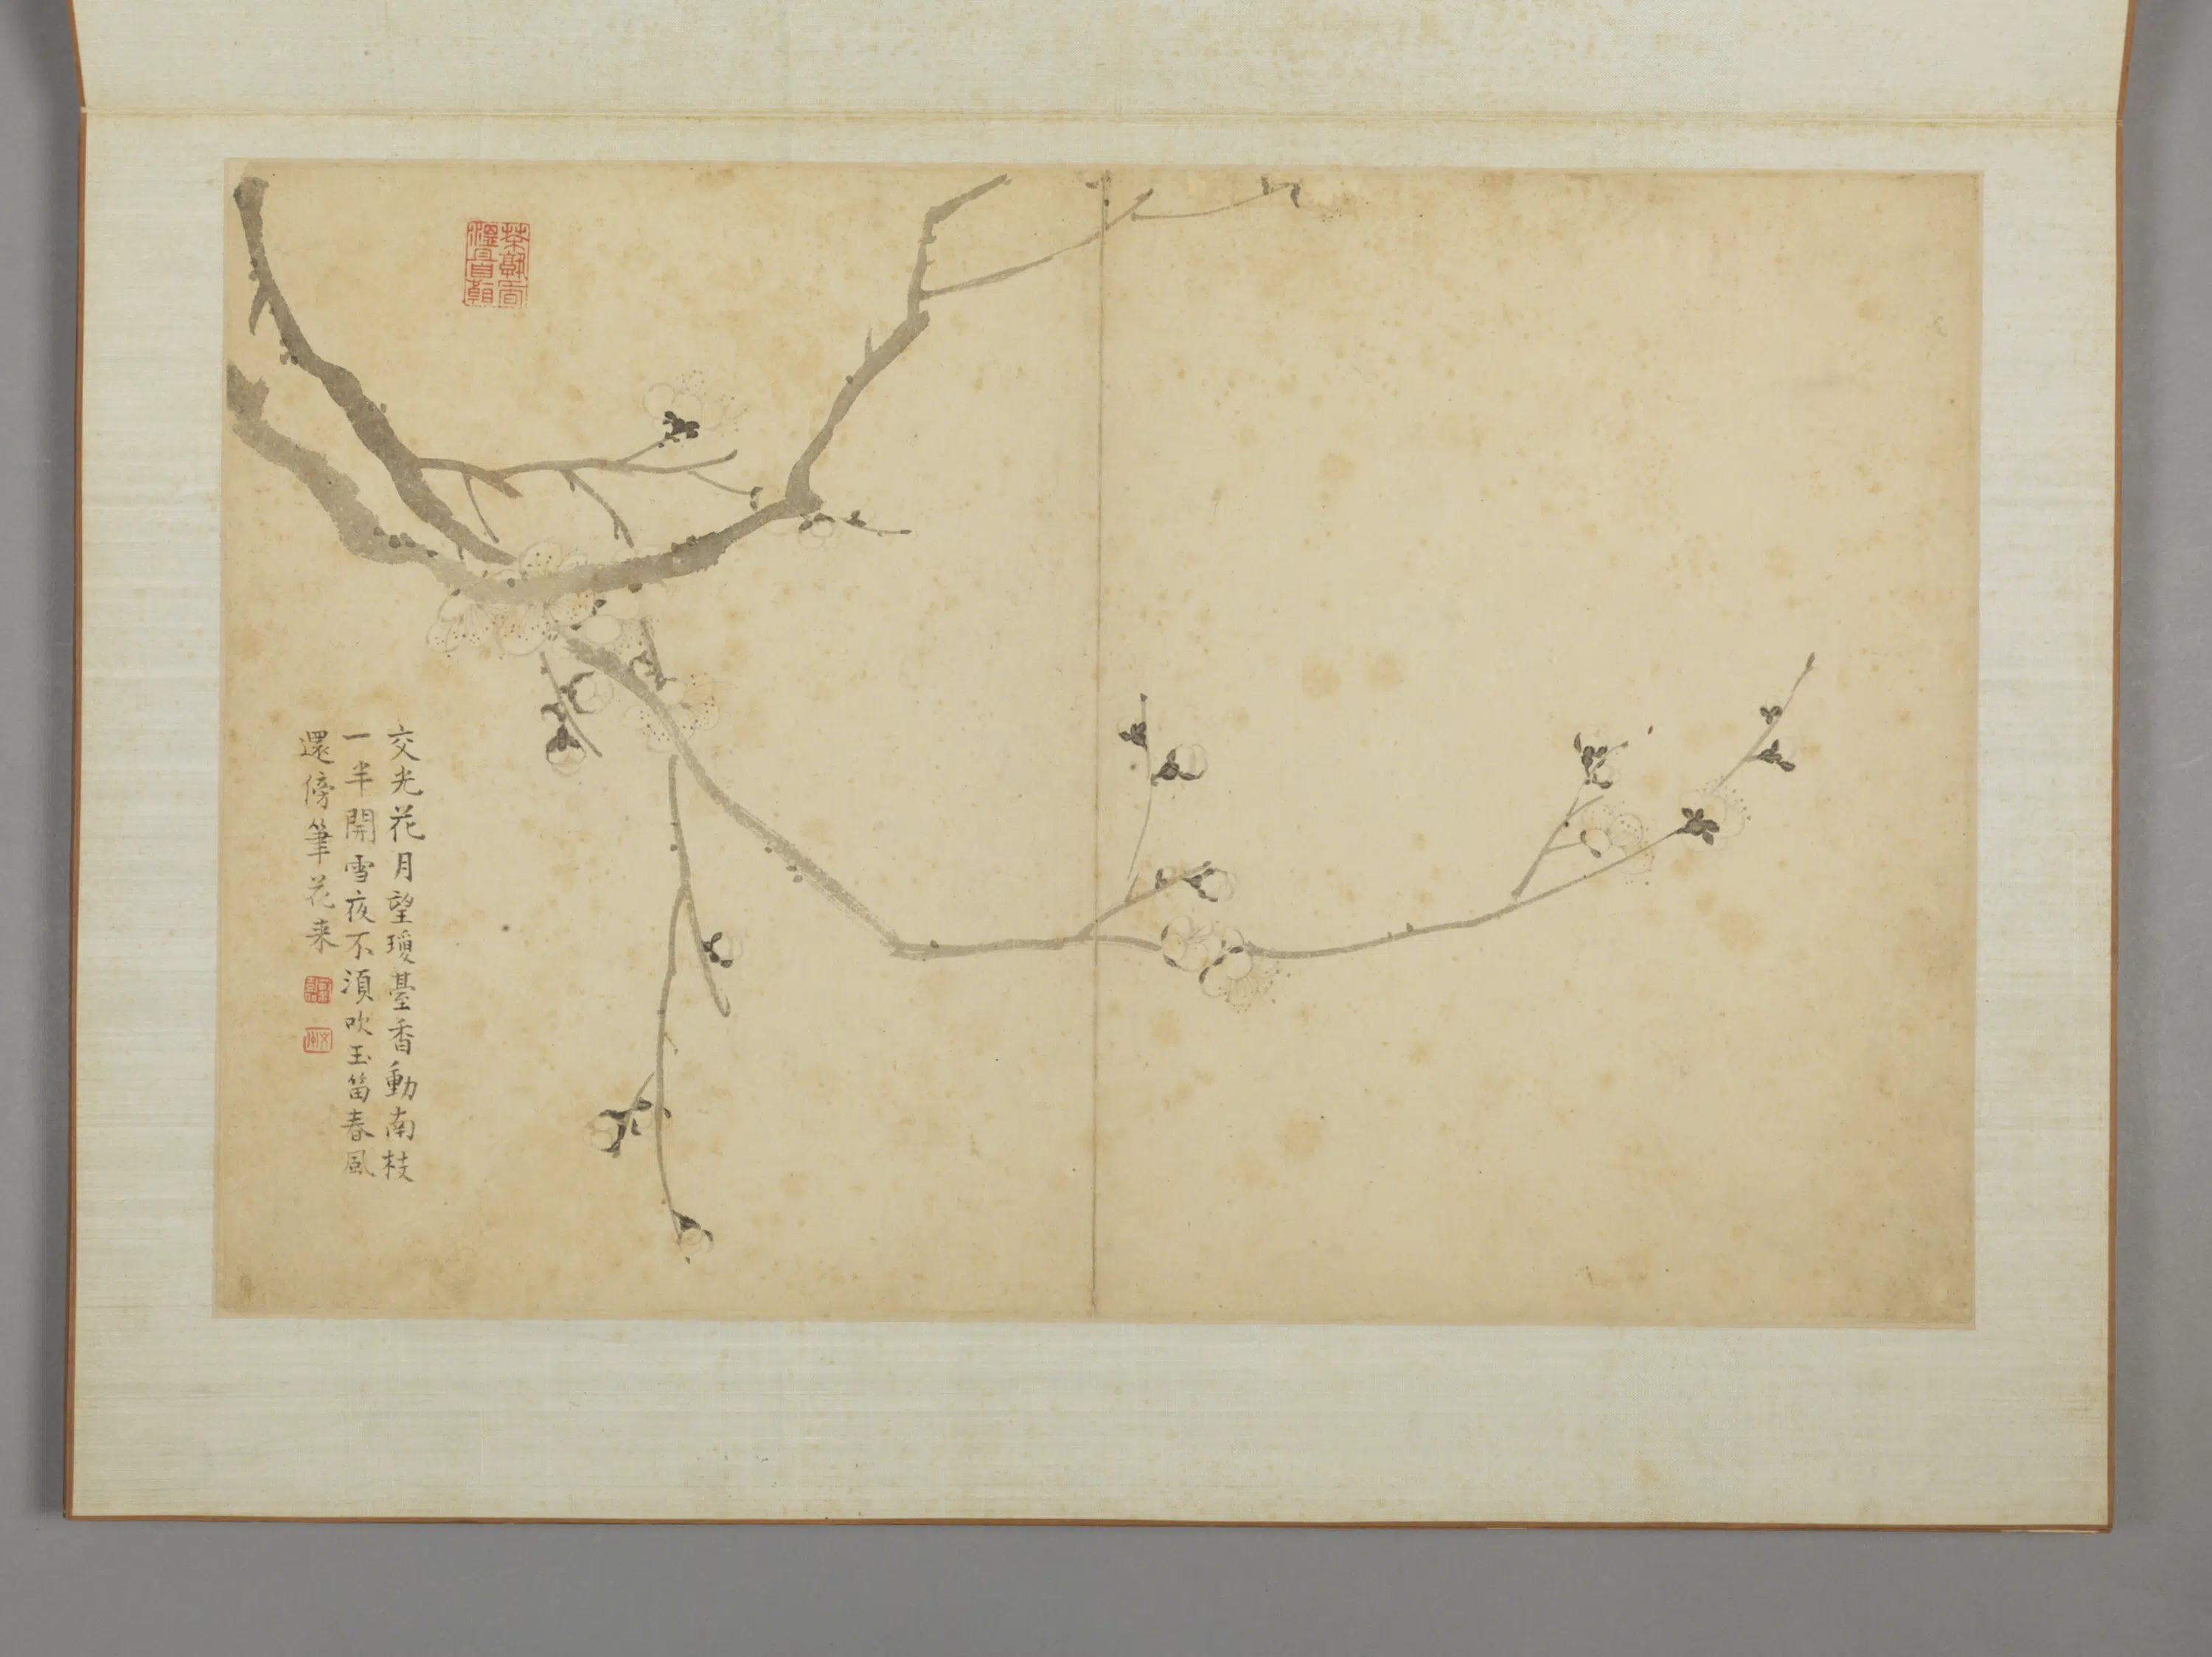 交光花月望瓊臺香動南枝
一半開雪夜不須吹玉笛春風
還傍筆花来